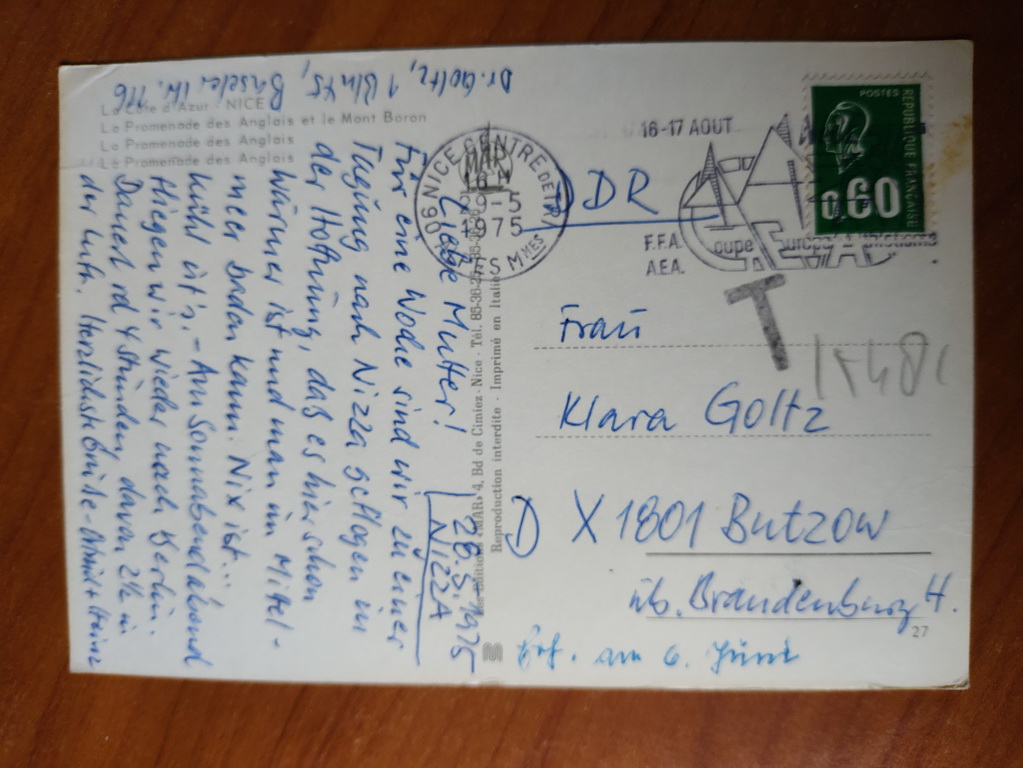 La Côte d'Azur : NICE
La Promenade des Anglais et le Mont Boron
La Promenade des Anglais
La Promenade des Anglais
La Promenade des Anglais
Dr. Goltz, 1 Bln 45, Baseler Str. 116
28.5.1975
NIZZA
Liebe Mutter!
Für eine Woche sind wir zu einer
Tagung nach Nizza geflogen in
der Hoffnung, daß es hier schon
wärmer ist und man im Mittel-
meer baden kann. Nix ist...
kühl ist's. - Am Sonnabendabend
fliegen wir wieder nach Berlin.
Dauert rd 4 Stunden, davon 2½ in
der Luft. Herzlichste Grüße - + Heinz
Les éditions «MAR» 4, Bd de Cimiez - Nice - Tél.
Reproduction interdite - Imprimé en Italie
MAR
06 NICE CENTRE DE TRI
16 H
29-5
1975
ALPES MMES
16-17 AOUT
F.F.A.
A.E.A.
Coupe Europe d'Athlétisme
POSTES
REPUBLIQUE FRANÇAISE
0.60
T
DDR
Frau
Klara Goltz
D X 1801 Butzow
üb. Brandenburg H.
27
Erh. am 6. Juni